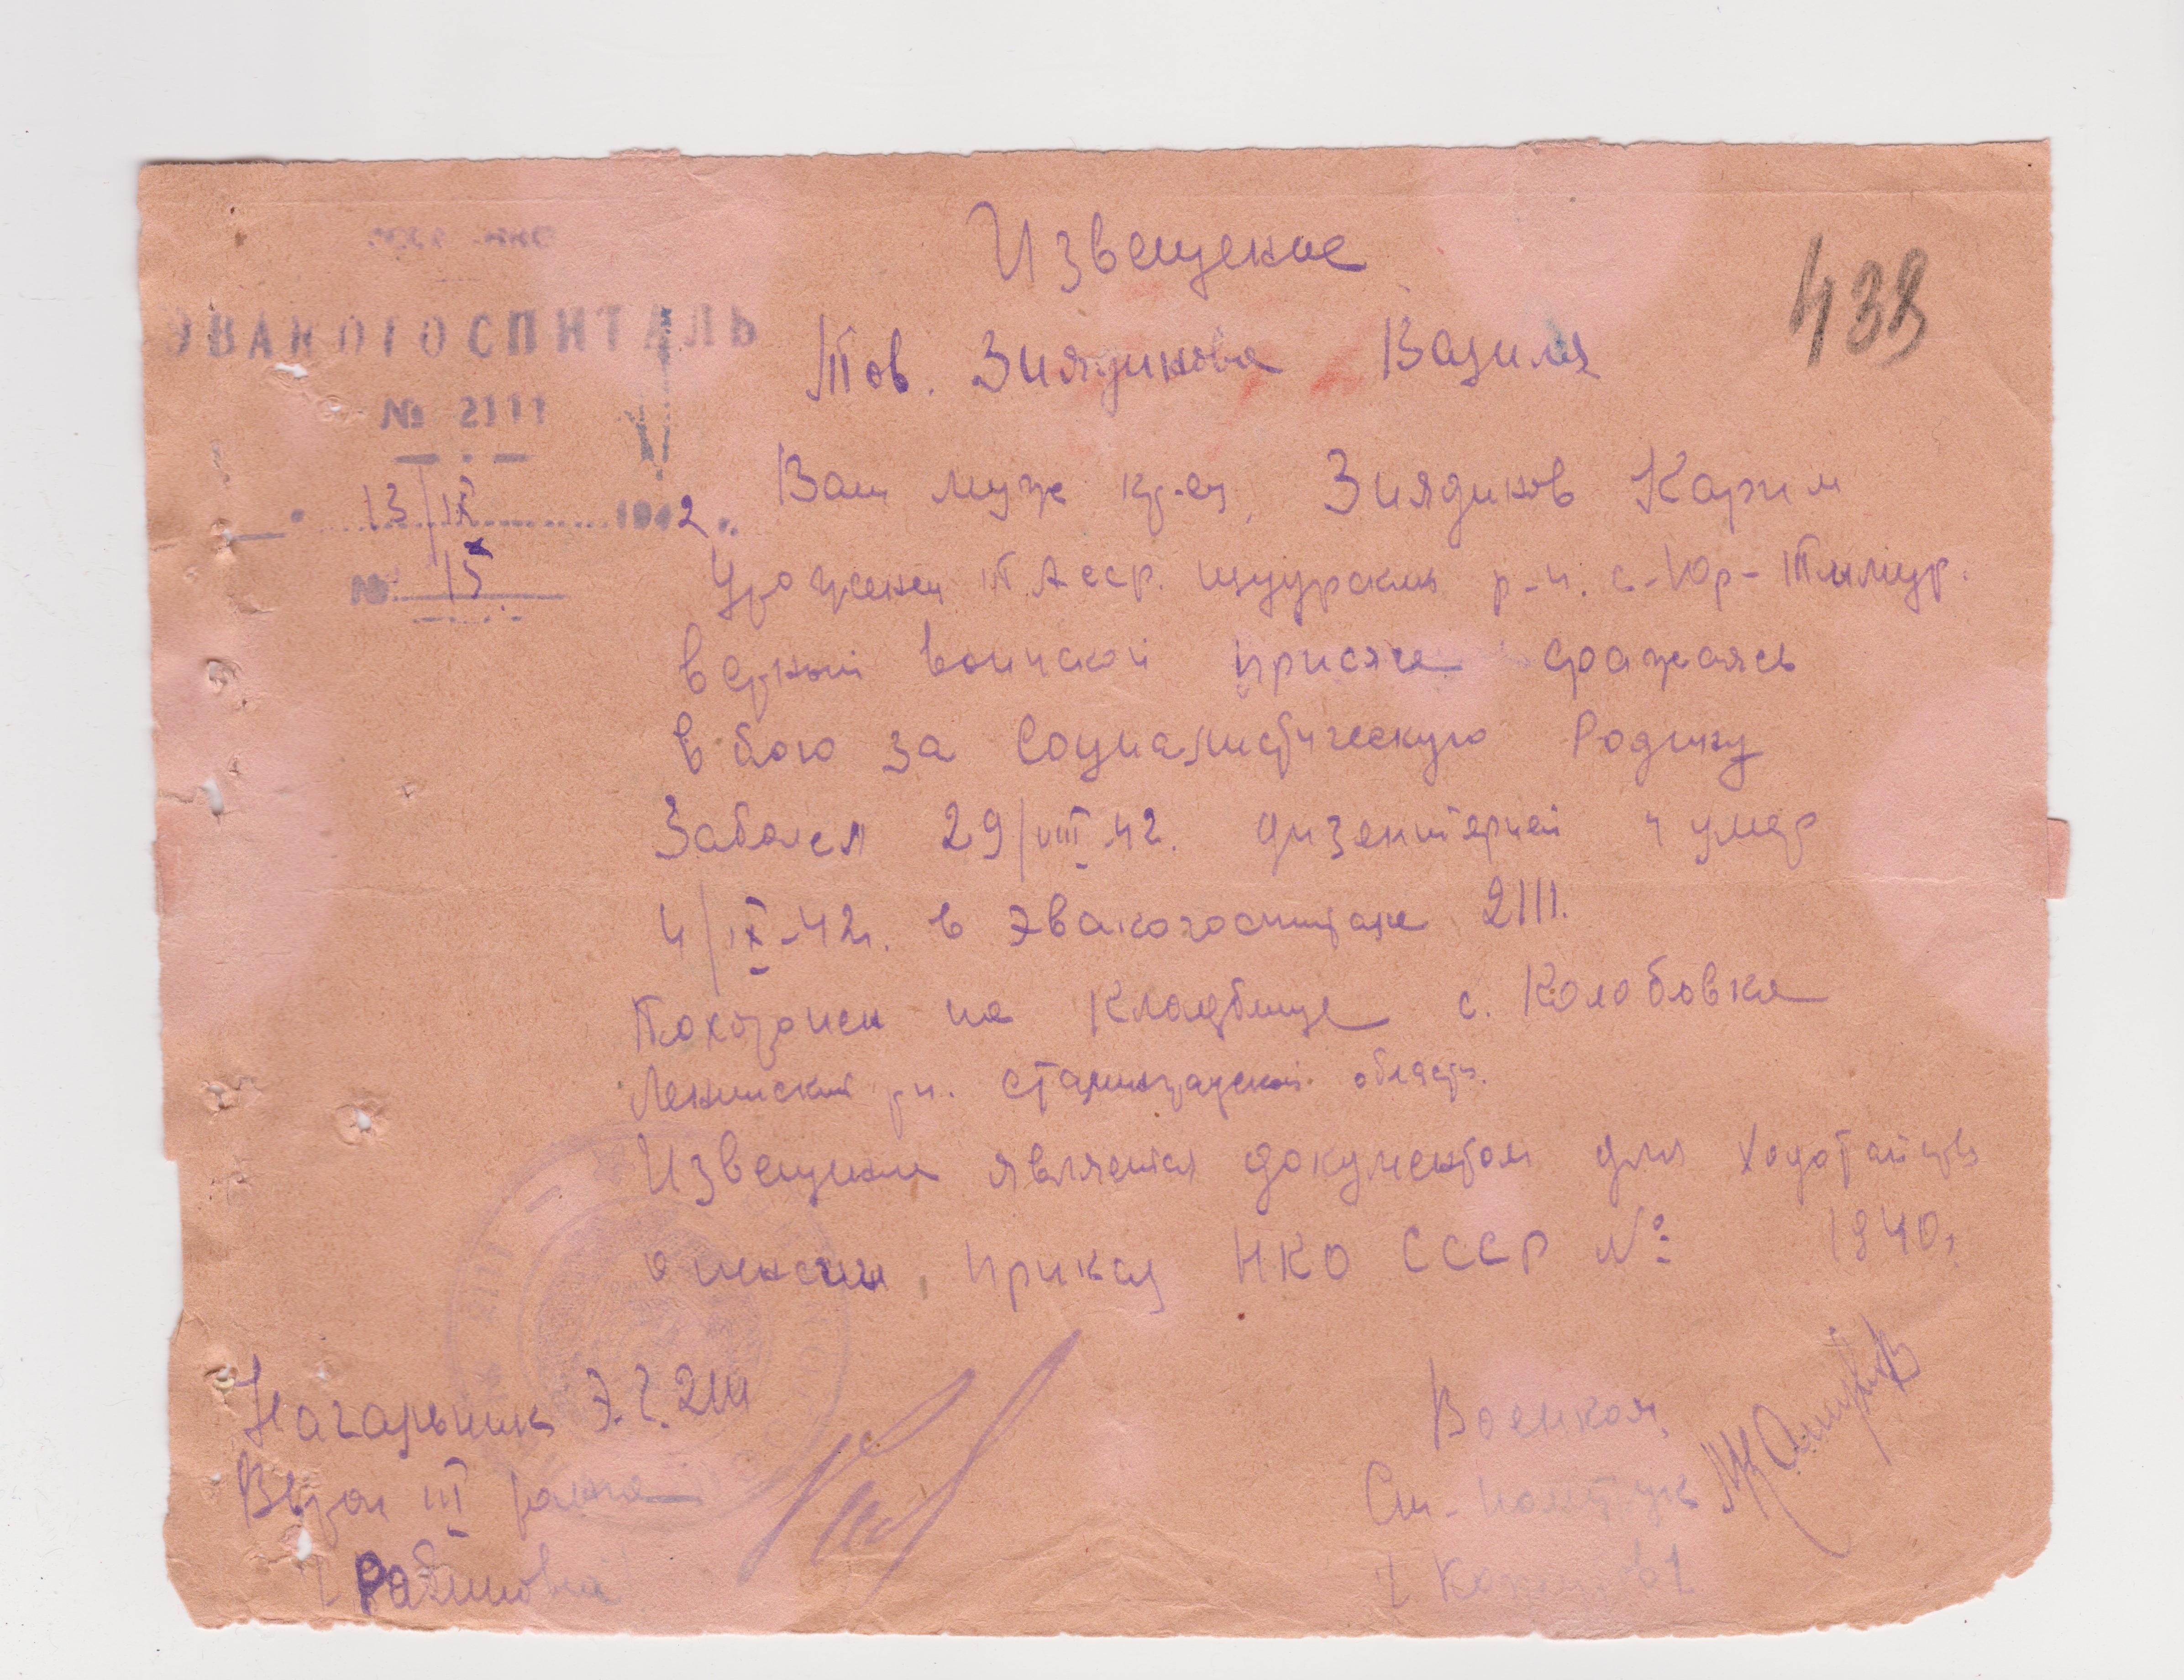 Извещение
438
СССР НКО
ЭВАКОГОСПИТАЛЬ
№ 2111
13/IX 1942
№ 15
Тов. Зиядинова Вазиля
Ваш муж кр-ец Зиядинов Карим
Уроженец Т. Асср. р-н. с-Юр-Тимур.
верный воинской присяге сражаясь
в бою за Социалистическую Родину
Заболел 29/VIII 42. дизентерией и умер
4/IX-42г. в Эвакогоспитале 2111.
Похоронен на Кладбище с. Колобовка
Ленинский р-н. Сталинградской область.
Извещение является документом для Ходатайств
о пенсии приказ НКО СССР № 1940г
Начальник Э.Г. 2111
Вврач III ранга
Рабинович
Военком
Ст. политрук